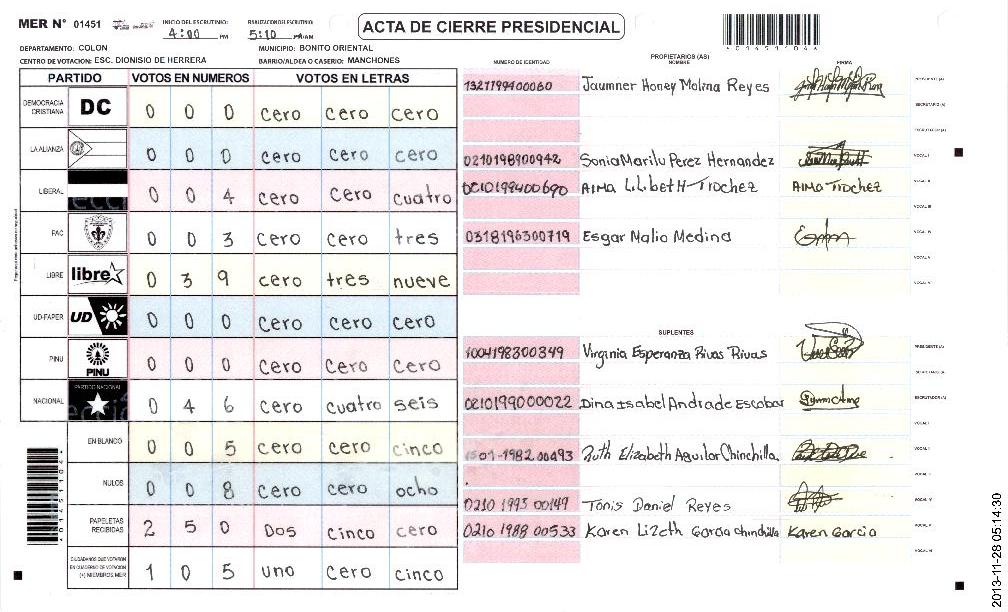 MER N° 01451
INICIO DEL ESCRUTINIO: 4:00 PM
REALIZACION DEL ESCRUTINIO 5:10 PM/AM
ACTA DE CIERRE PRESIDENCIAL
DEPARTAMENTO: COLON
MUNICIPIO: BONITO ORIENTAL
CENTRO DE VOTACION: ESC. DIONISIO DE HERRERA
BARRIO/ALDEA O CASERIO: MANCHONES
PARTIDO VOTOS EN NUMEROS VOTOS EN LETRAS
DEMOCRACIA CRISTIANA DC 0 0 0 cero cero cero
LA ALIANZA 0 0 0 cero cero cero
LIBERAL 0 0 4 cero cero cuatro
PAC 0 0 3 cero cero tres
LIBRE libre 0 3 9 cero tres nueve
UD-FAPER UD 0 0 0 cero cero cero
PINU PINU 0 0 0 cero cero cero
NACIONAL PARTIDO NACIONAL 0 4 6 cero cuatro seis
EN BLANCO 0 0 5 cero cero cinco
NULOS 0 0 8 cero cero ocho
PAPELETAS RECIBIDAS 2 5 0 Dos cinco cero
CIUDADANOS QUE VOTARON EN CUADERNO DE VOTACION (+) MIEMBROS MER 1 0 5 uno cero cinco
PROPIETARIOS (AS)
NUMERO DE IDENTIDAD NOMBRE FIRMA
1327199400060 Jaumner Honey Molina Reyes PRESIDENTE (A)
SECRETARIO (A)
ESCRUTADOR (A)
0210198900942 Sonia Marilu Perez Hernandez VOCAL I
0210199400690 Alma Lilibeth Trochez Alma Trochez VOCAL II
VOCAL III
0318196300719 Esgar Malio Medina VOCAL IV
VOCAL V
VOCAL VI
SUPLENTES
1004198300349 Virginia Esperanza Rivas Rivas PRESIDENTE (A)
SECRETARIO (A)
0210199000022 Dina Isabel Andrade Escobar ESCRUTADOR (A)
VOCAL I
1501-1982 00493 Ruth Elizabeth Aguilar Chinchilla VOCAL II
0210 1993 00149 Tonis Daniel Reyes VOCAL IV
0210 1988 00533 Karen Lizeth Garcia chinchilla Karen Garcia VOCAL V
VOCAL VI
2013-11-28 05:14:30